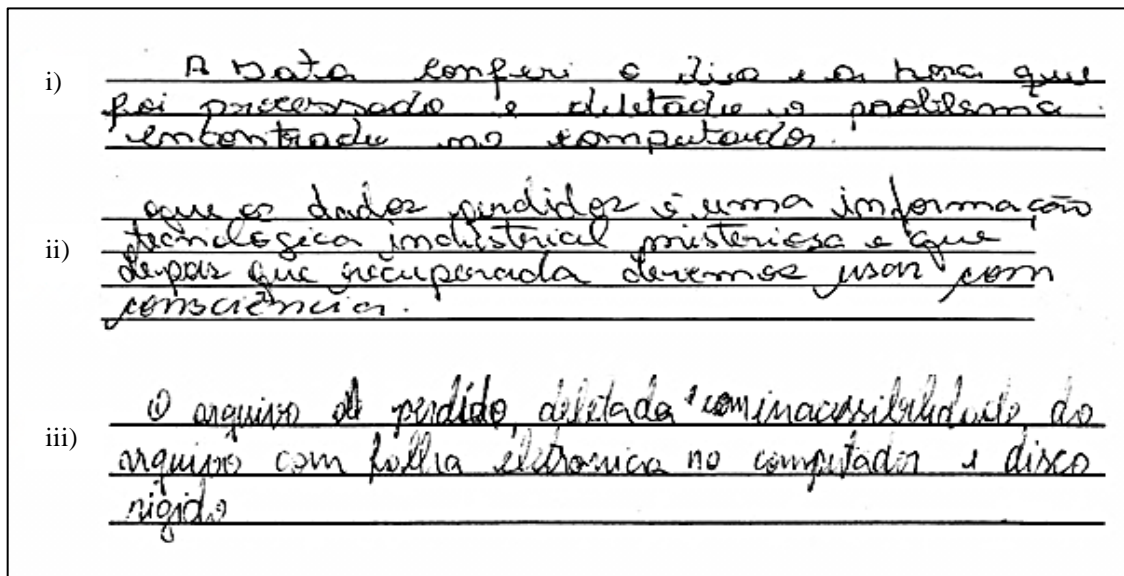 i)
A Data conferi o dia e a hora que
foi processado e deletado o problema
encontrado no computador.
ii)
que os dados perdidos é uma informação
tecnologica industerial misteriosa e que
depois que recuperada devemos usar com
consciência.
iii)
O arquivo de perdido, deletada com inacessibilidade do
arquivo com folha eletronica no computador e disco
rigido